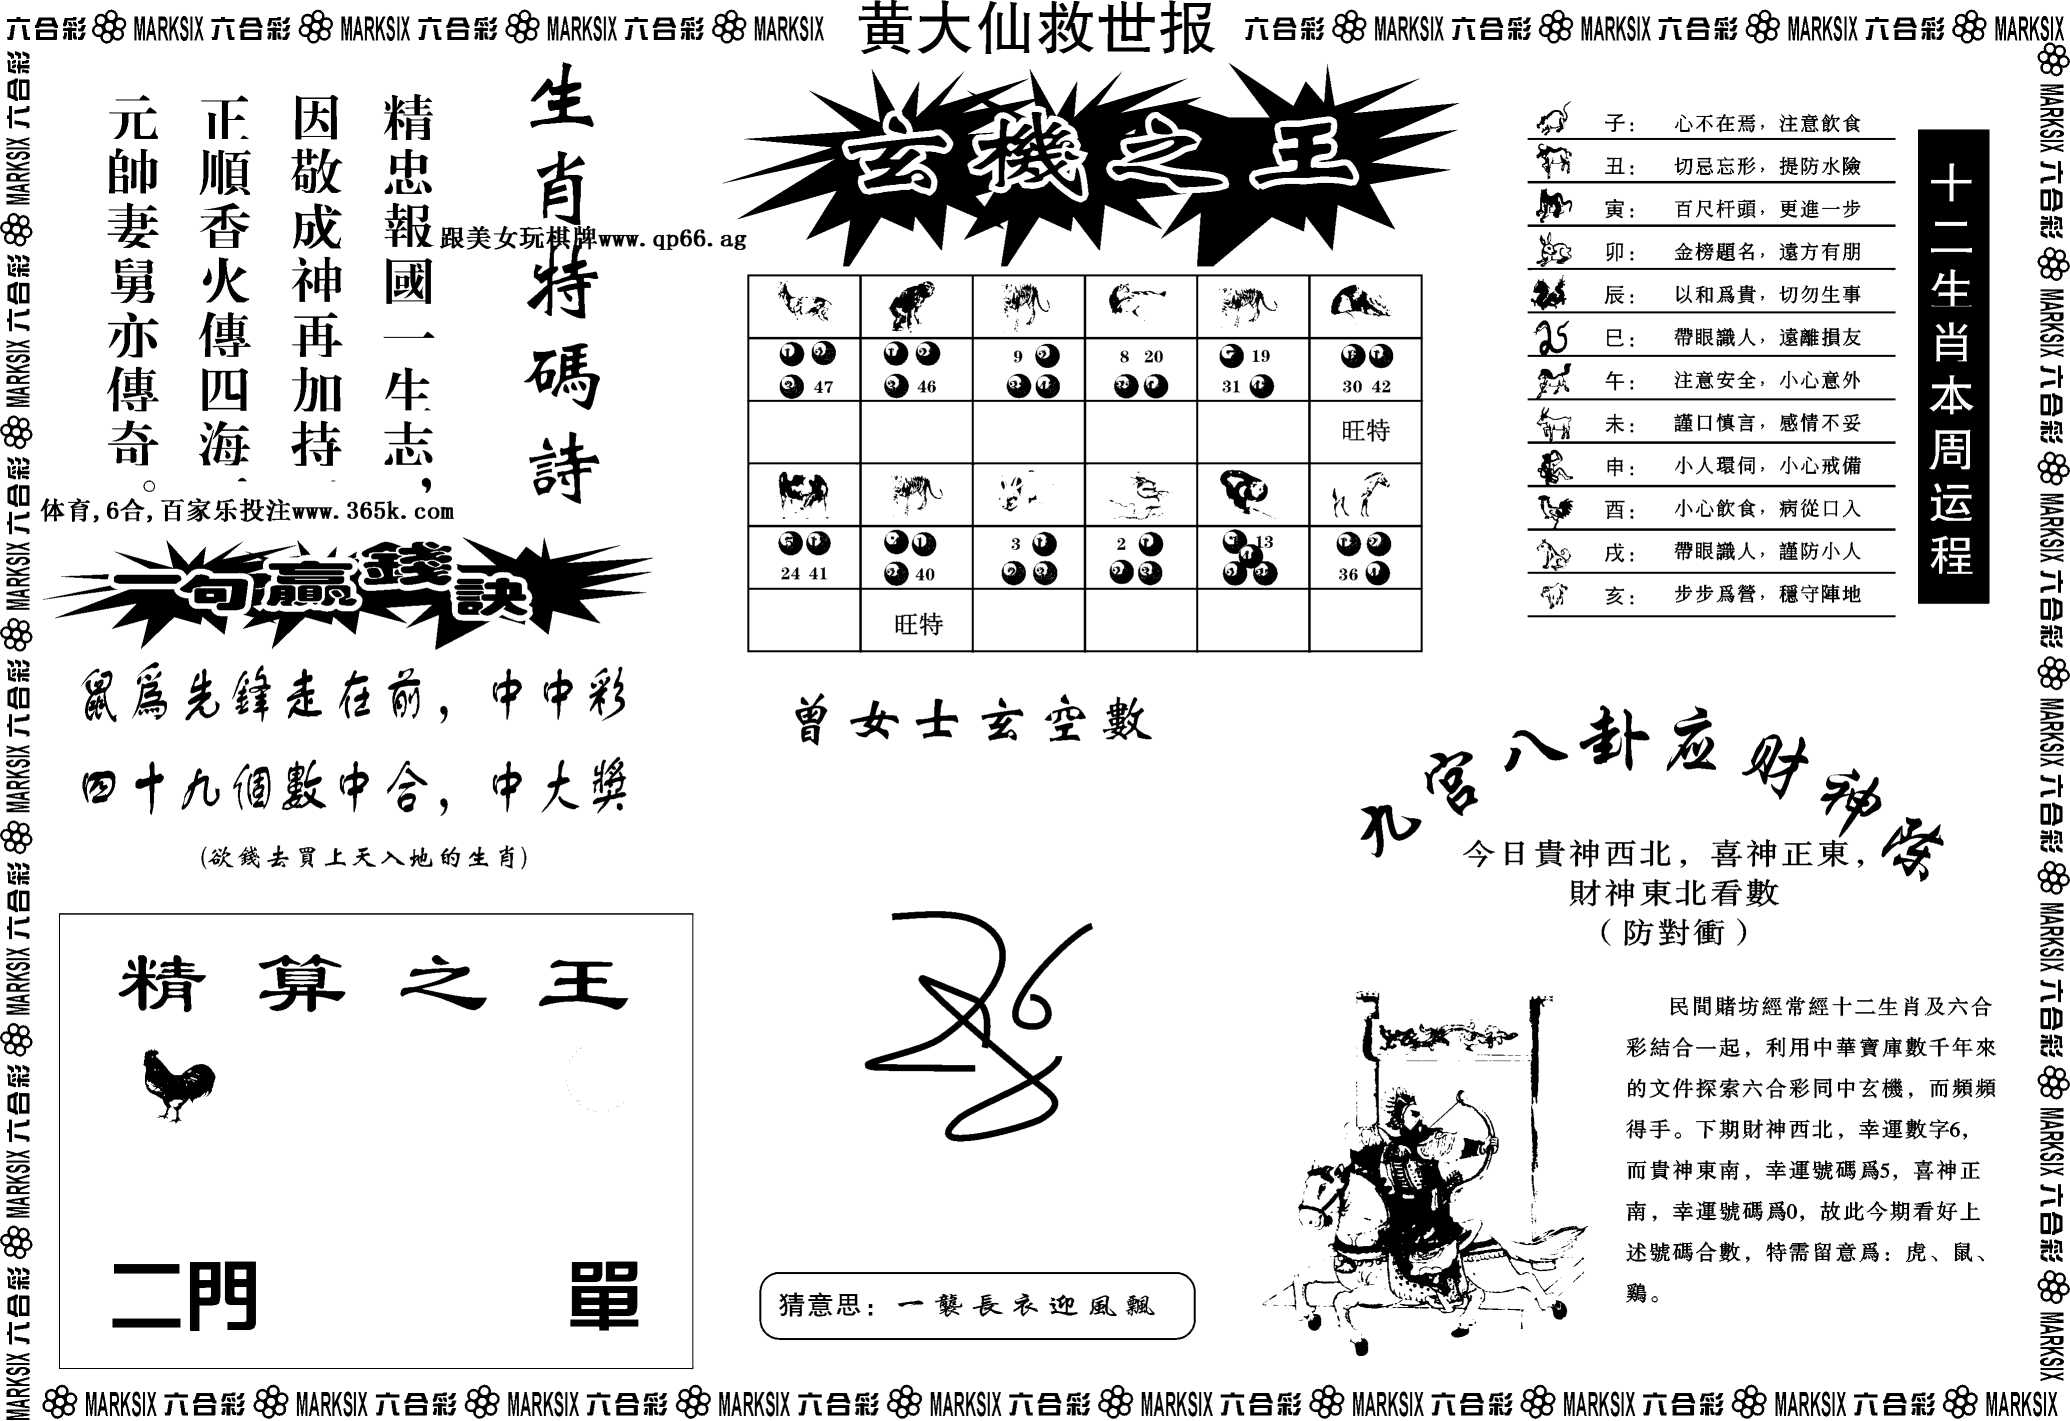 六合彩 MARKSIX 六合彩 MARKSIX 六合彩 MARKSIX 六合彩 MARKSIX
黄大仙救世报
六合彩 MARKSIX 六合彩 MARKSIX 六合彩 MARKSIX 六合彩 MARKSIX
生肖特碼詩
精忠報國一生志，
因敬成神再加持
正順香火傳四海
元帥妻舅亦傳奇。
跟美女玩棋牌www.qp66.ag
体育,6合,百家乐投注www.365k.com
一句贏錢訣
鼠爲先鋒走在前，中中彩
四十九個數中合，中大獎
(欲錢去買上天入地的生肖)
精算之王
二門
單
玄機之王
47
46
9
8 20
19
31
30 42
旺特
24 41
40
3
2
13
36
旺特
曾女士玄空數
猜意思：一襲長衣迎風飄
十二生肖本周运程
子：心不在焉，注意飲食
丑：切忌忘形，提防水險
寅：百尺杆頭，更進一步
卯：金榜題名，遠方有朋
辰：以和爲貴，切勿生事
巳：帶眼識人，遠離損友
午：注意安全，小心意外
未：謹口慎言，感情不妥
申：小人環伺，小心戒備
酉：小心飲食，病從口入
戌：帶眼識人，謹防小人
亥：步步爲營，穩守陣地
九宮八卦应财神
今日貴神西北，喜神正東，
財神東北看數
（防對衝）
民間賭坊經常經十二生肖及六合
彩結合一起，利用中華寶庫數千年來
的文件探索六合彩同中玄機，而頻頻
得手。下期財神西北，幸運數字6，
而貴神東南，幸運號碼爲5，喜神正
南，幸運號碼爲0，故此今期看好上
述號碼合數，特需留意爲：虎、鼠、
鷄。
MARKSIX 六合彩 MARKSIX 六合彩 MARKSIX 六合彩 MARKSIX 六合彩 MARKSIX 六合彩 MARKSIX 六合彩 MARKSIX 六合彩 MARKSIX 六合彩 MARKSIX 六合彩 MARKSIX